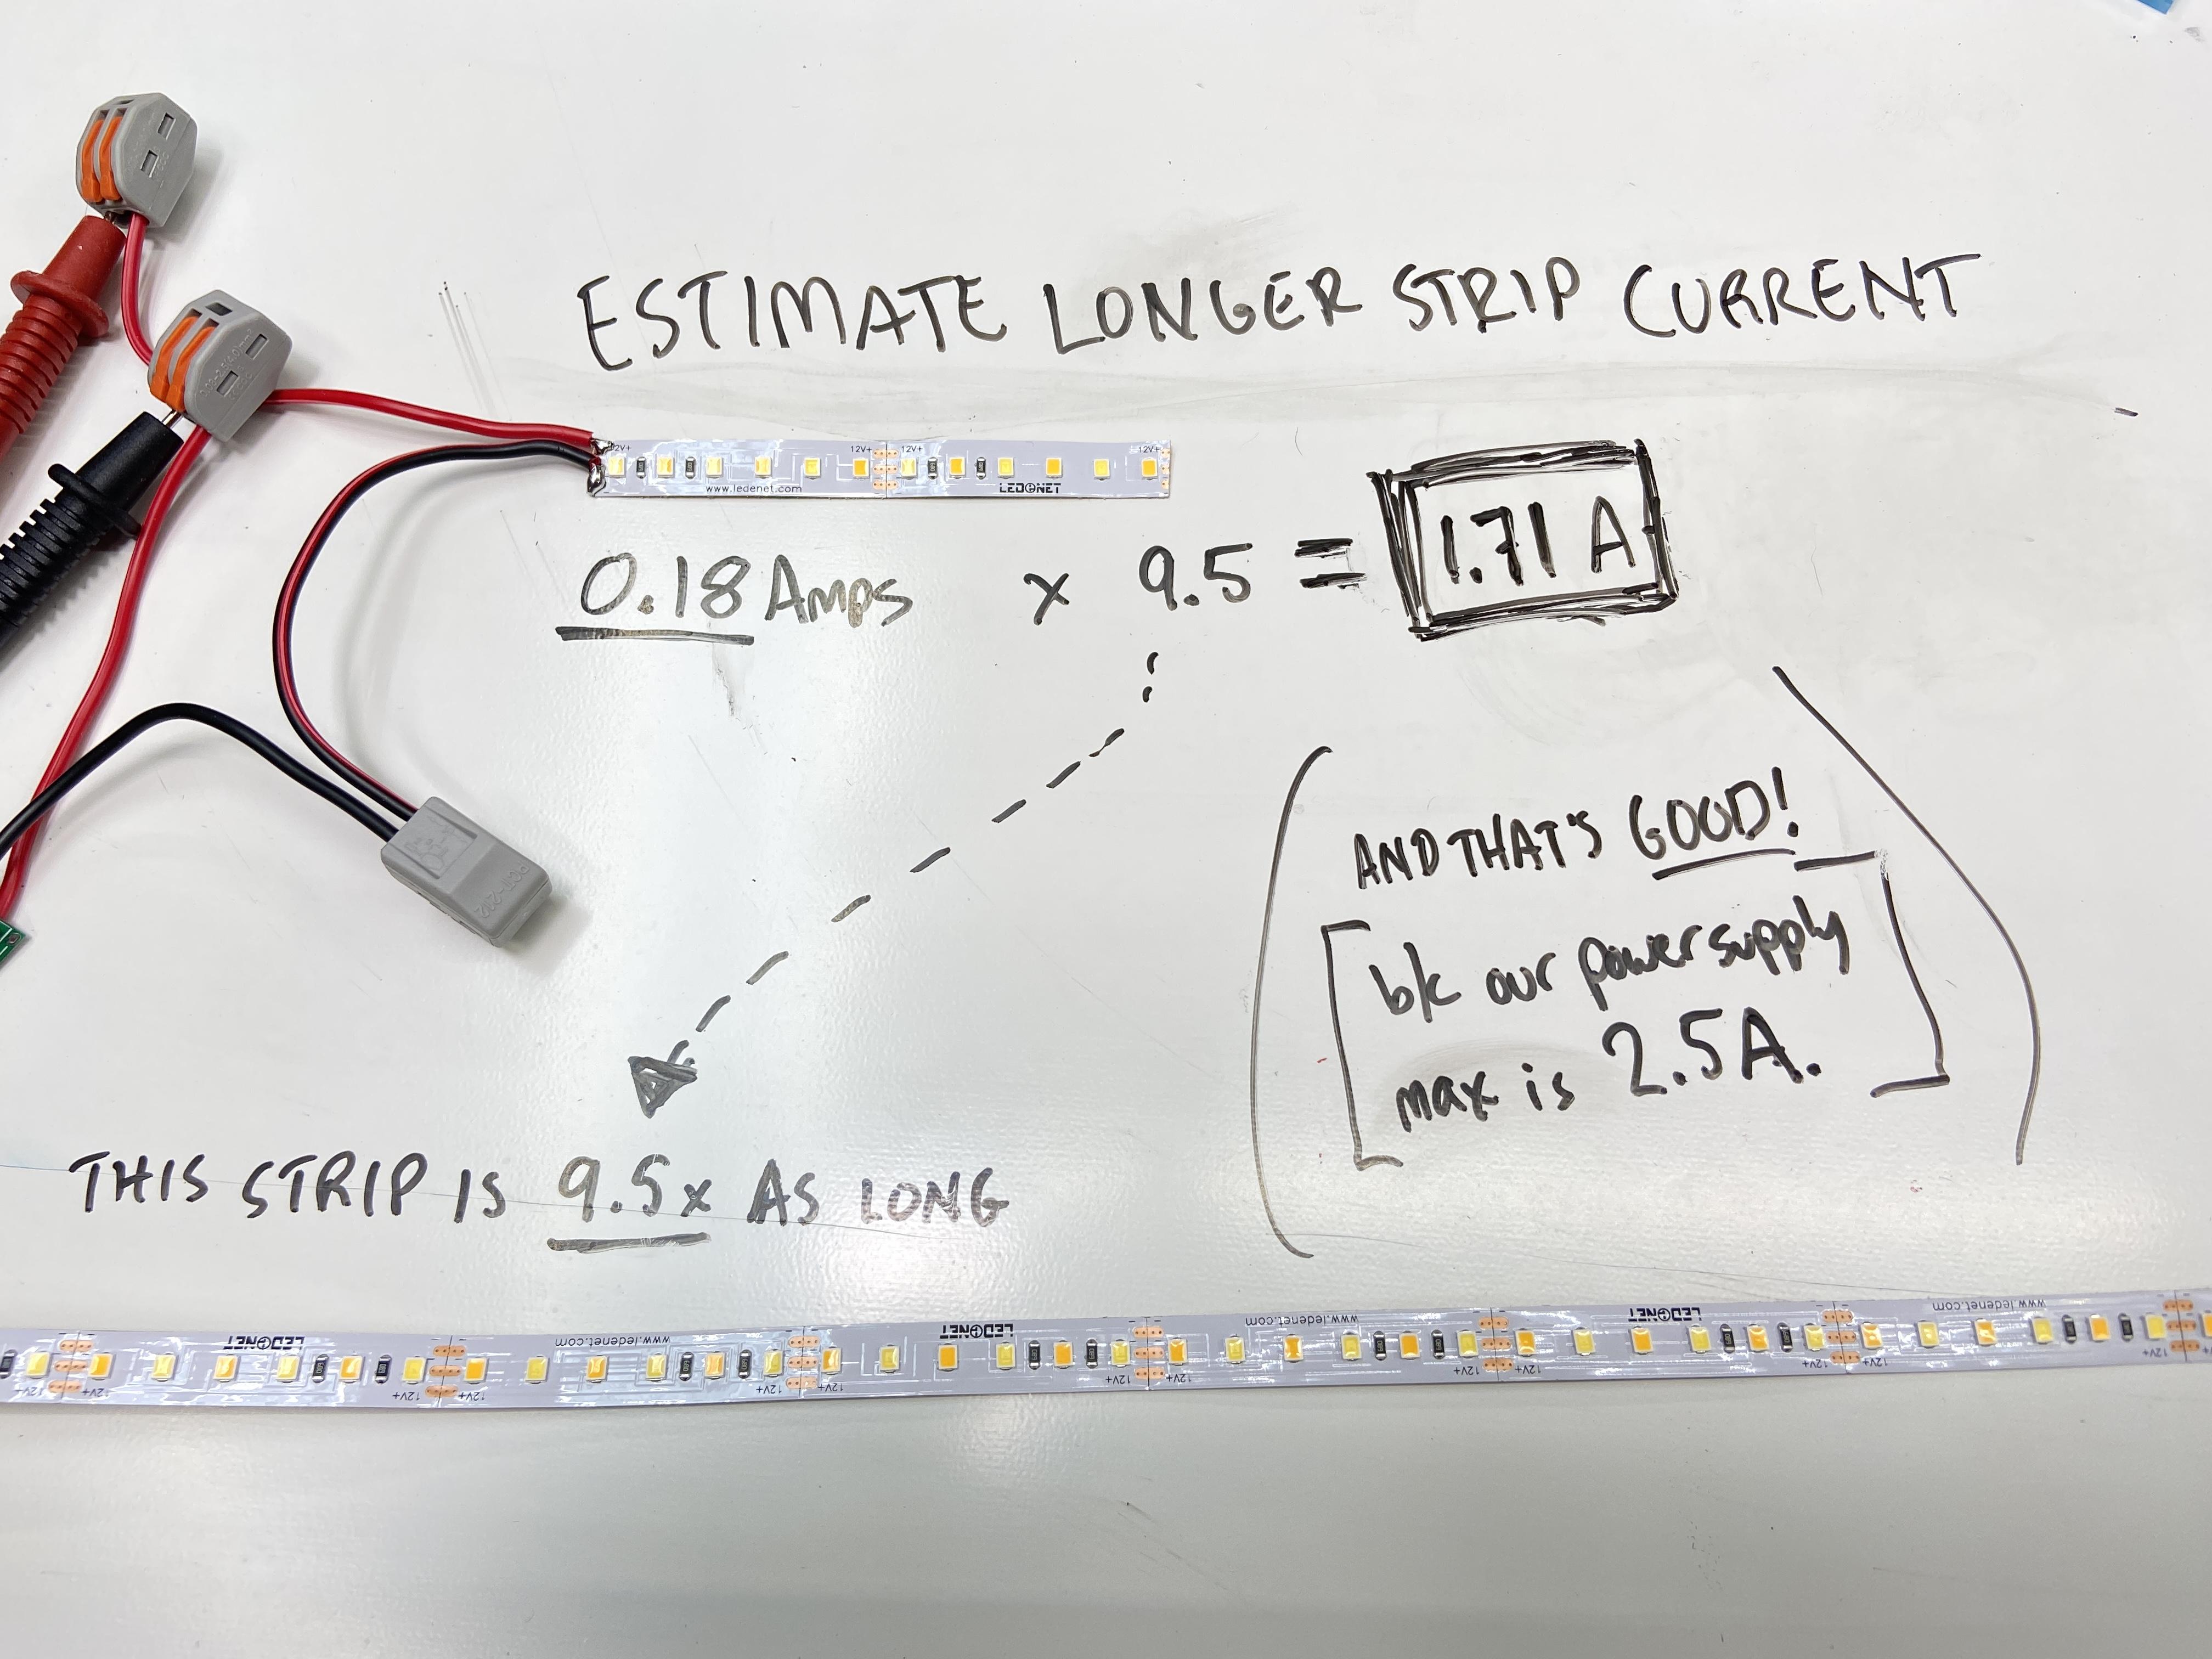 ESTIMATE LONGER STRIP CURRENT
12V+ 12V+ 12V+ 12V+
www.ledenet.com LEDENET
0.18 Amps x 9.5 = 1.71 A
AND THAT'S GOOD!
b/c our power supply
max is 2.5A.
PCT-222
THIS STRIP IS 9.5x AS LONG
LEDENET www.ledenet.com LEDENET www.ledenet.com LEDENET www.ledenet.com
12V+ 12V+ 12V+ 12V+ 12V+ 12V+ 12V+ 12V+ 12V+ 12V+ 12V+ 12V+ 12V+